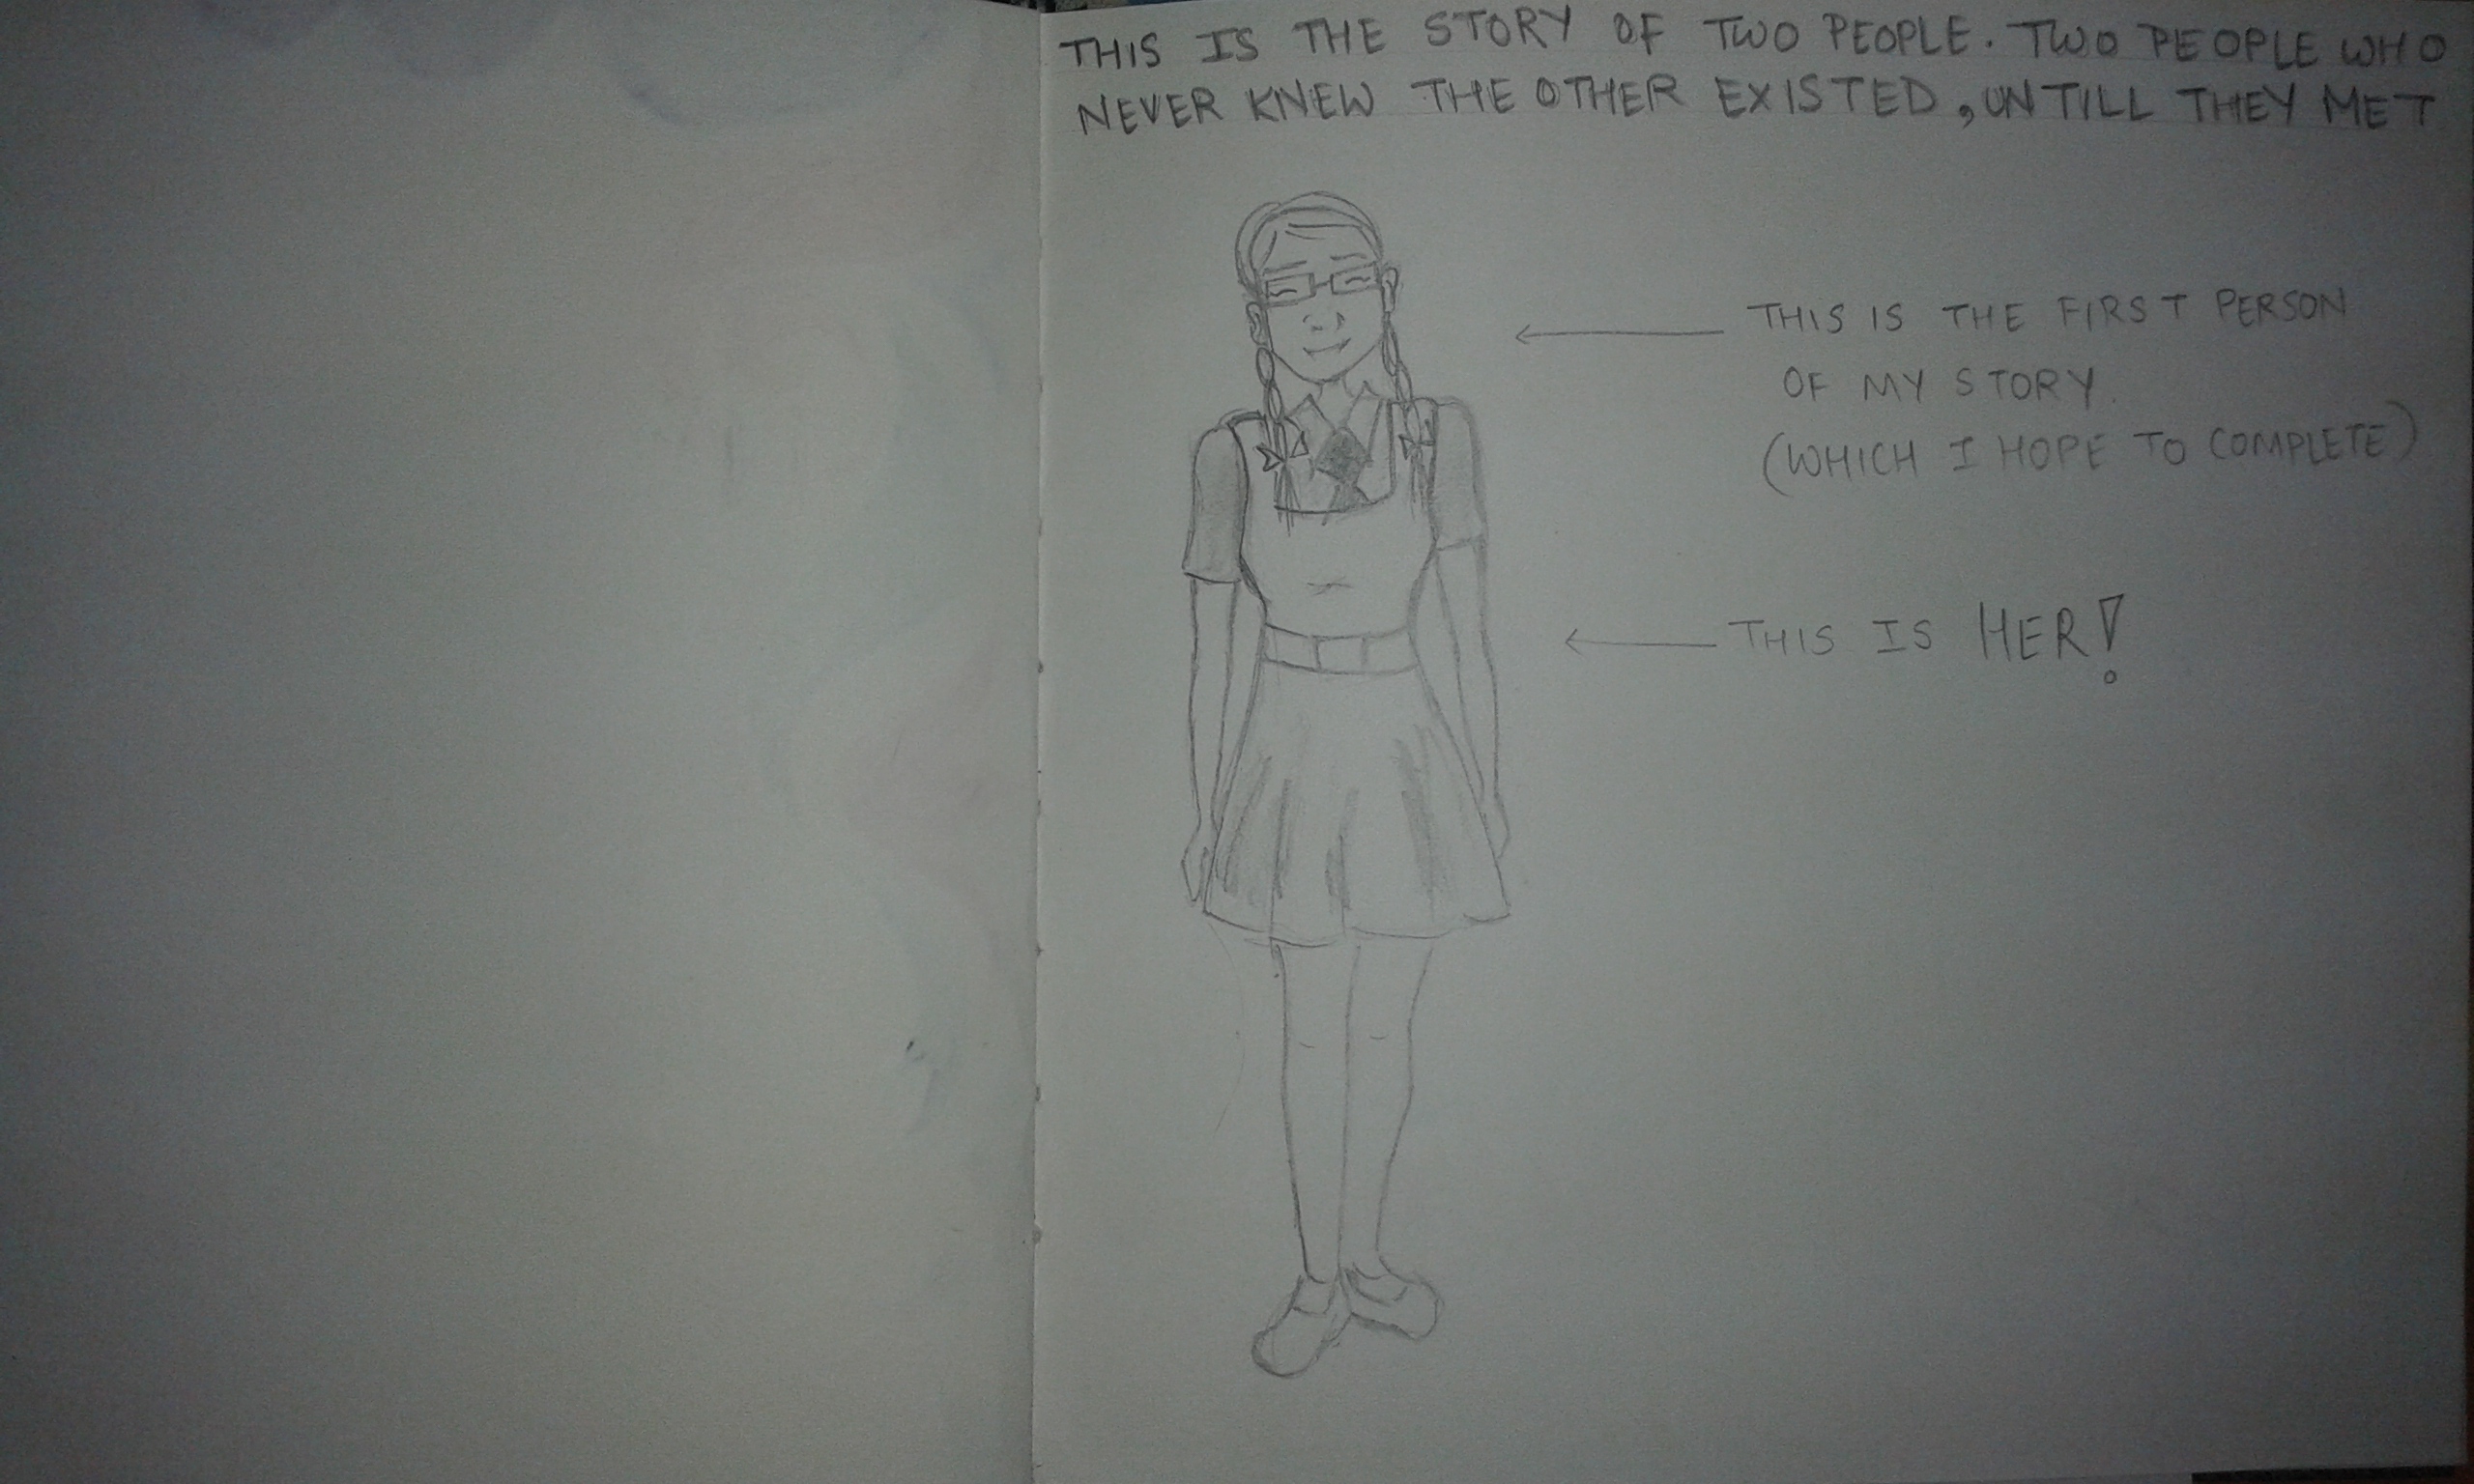 THIS IS THE STORY OF TWO PEOPLE. TWO PEOPLE WHO
NEVER KNEW THE OTHER EXISTED, UNTILL THEY MET
THIS IS THE FIRST PERSON
OF MY STORY.
(WHICH I HOPE TO COMPLETE)
THIS IS HER!